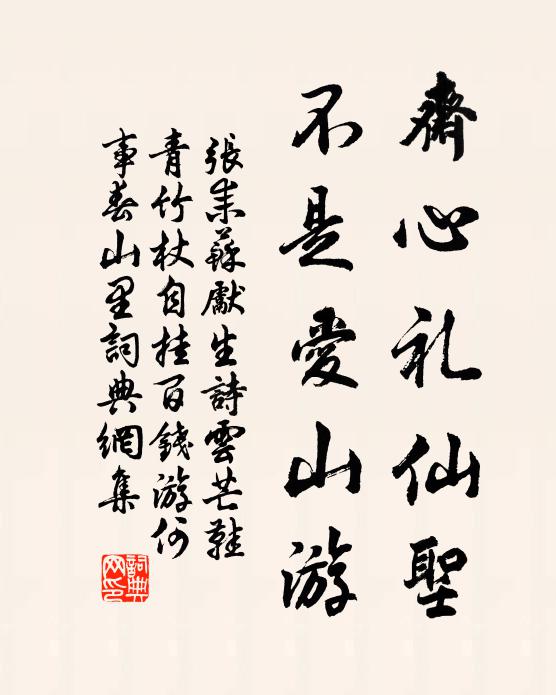 齋心礼仙聖
不是愛山游
張耒蘇獻生詩雲芒鞋
青竹杖自挂百錢游何
事春山里詞典網集
詞典网印